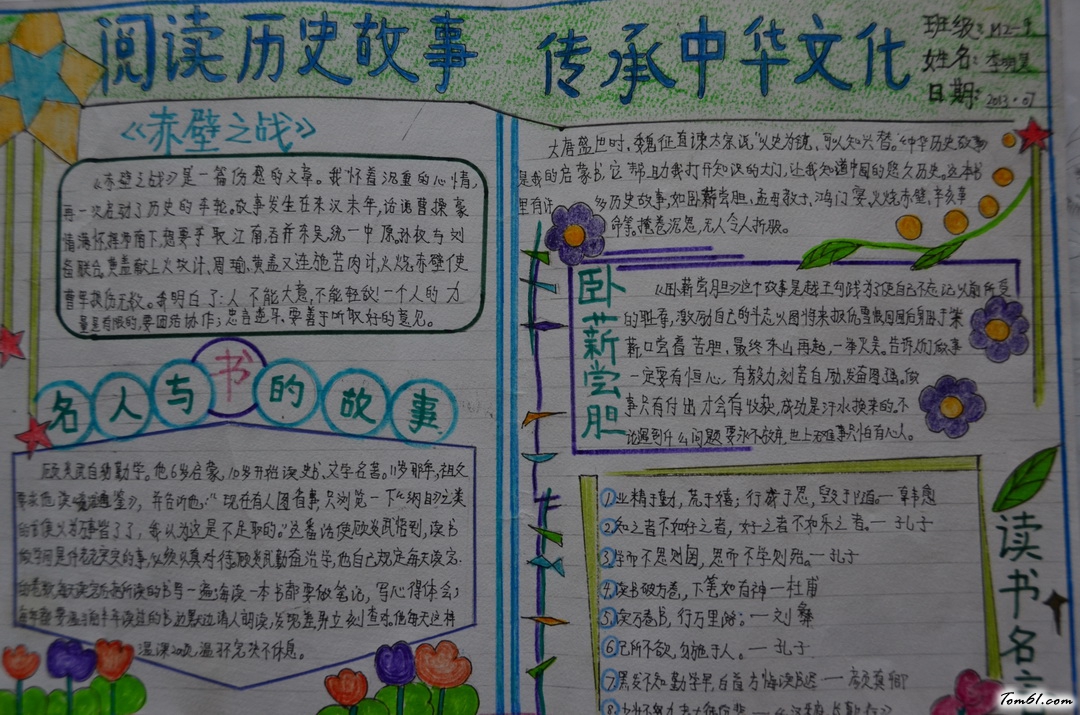 阅读历史故事 传承中华文化
班级:
姓名:
日期: 2013.07
《赤壁之战》
《赤壁之战》是一篇伤感的文章。我怀着沉重的心情,
再一次启动了历史的车轮。故事发生在东汉末年,话说曹操豪
情满怀挥师南下,想要夺取江南,吞并东吴,统一中原,孙权与刘
备联合,黄盖献上火攻计、周瑜、黄盖又连施苦肉计,火烧赤壁使
曹军损伤无数。我明白了:人不能大意,不能轻敌!一个人的力
量是有限的,要团结协作;忠言逆耳,要善于听取好的意见。
名人与书的故事
顾炎武自幼勤学。他6岁启蒙,10岁开始读史书、文学名著。11岁那年,祖父
要求他读《资治通鉴》,并告诉他:"现在有人图省事,只浏览一下《纲目》之类
的书便以为万事皆了了,我认为这是不足取的。"这番话使顾炎武悟到,读书
做学问是件老老实实的事,必须认真对待。顾炎武勤奋治学,他自己规定每天读完
的卷数,每天读完后把所读的书写一遍;每读一本书都要做笔记,写心得体会;
温课200页,温习完决不休息。
大唐盛世时,魏征直谏太宗说"以史为镜,可以知兴替。"《中华历史故事
是我的启蒙书,它帮助我打开知识的大门,让我知道中国的悠久历史。这本书
里有许多历史故事,如卧薪尝胆,孟母教子,鸿门宴,火烧赤壁,辛亥革
命等。掩卷沉思,无人令人折服。
卧薪尝胆
《卧薪尝胆》这个故事是越王勾践为了使自己不忘记以前所受
的耻辱,激励自己的斗志以图将来报仇雪恨,回国后身卧于柴
薪口尝着苦胆,最终东山再起,一举灭吴。告诉我们做事
一定要有恒心,有毅力,刻苦自励,发奋图强。做
事只有付出才会有收获,成功是汗水换来的。不
论遇到什么问题要永不放弃,世上无难事只怕有心人。
读书名言
①业精于勤,荒于嬉;行成于思,毁于随。—韩愈
②知之者不如好之者,好之者不如乐之者。—孔子
③学而不思则罔,思而不学则殆。—孔子
④读书破万卷,下笔如有神—杜甫
⑤读万卷书,行万里路。—刘彝
⑥己所不欲,勿施于人。—孔子
⑦黑发不知勤学早,白首方悔读书迟—颜真卿
Tom61.com